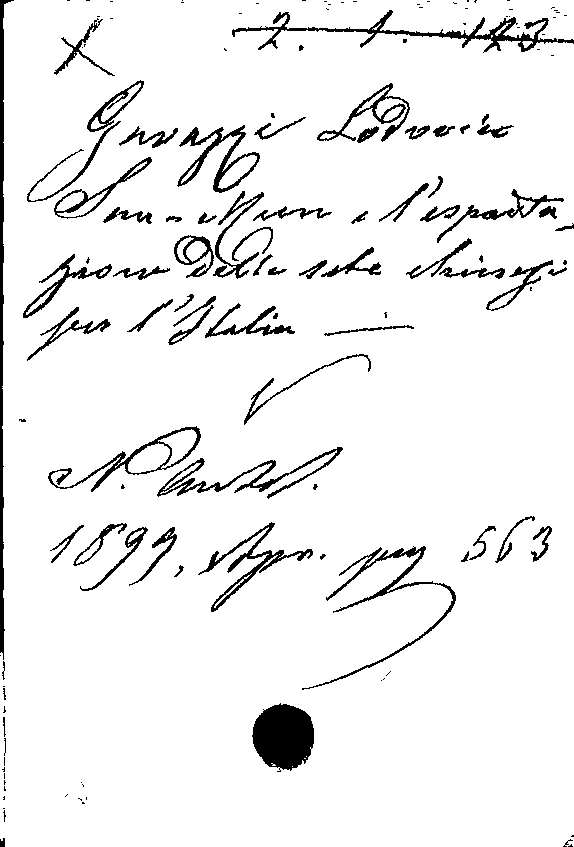 2. 1. 123
Gavazzi Lodovico
San-Mun e l'esporta-
zione delle sete chinesi
per l'Italia —
N. Antol.
1899, Apr. pag 563